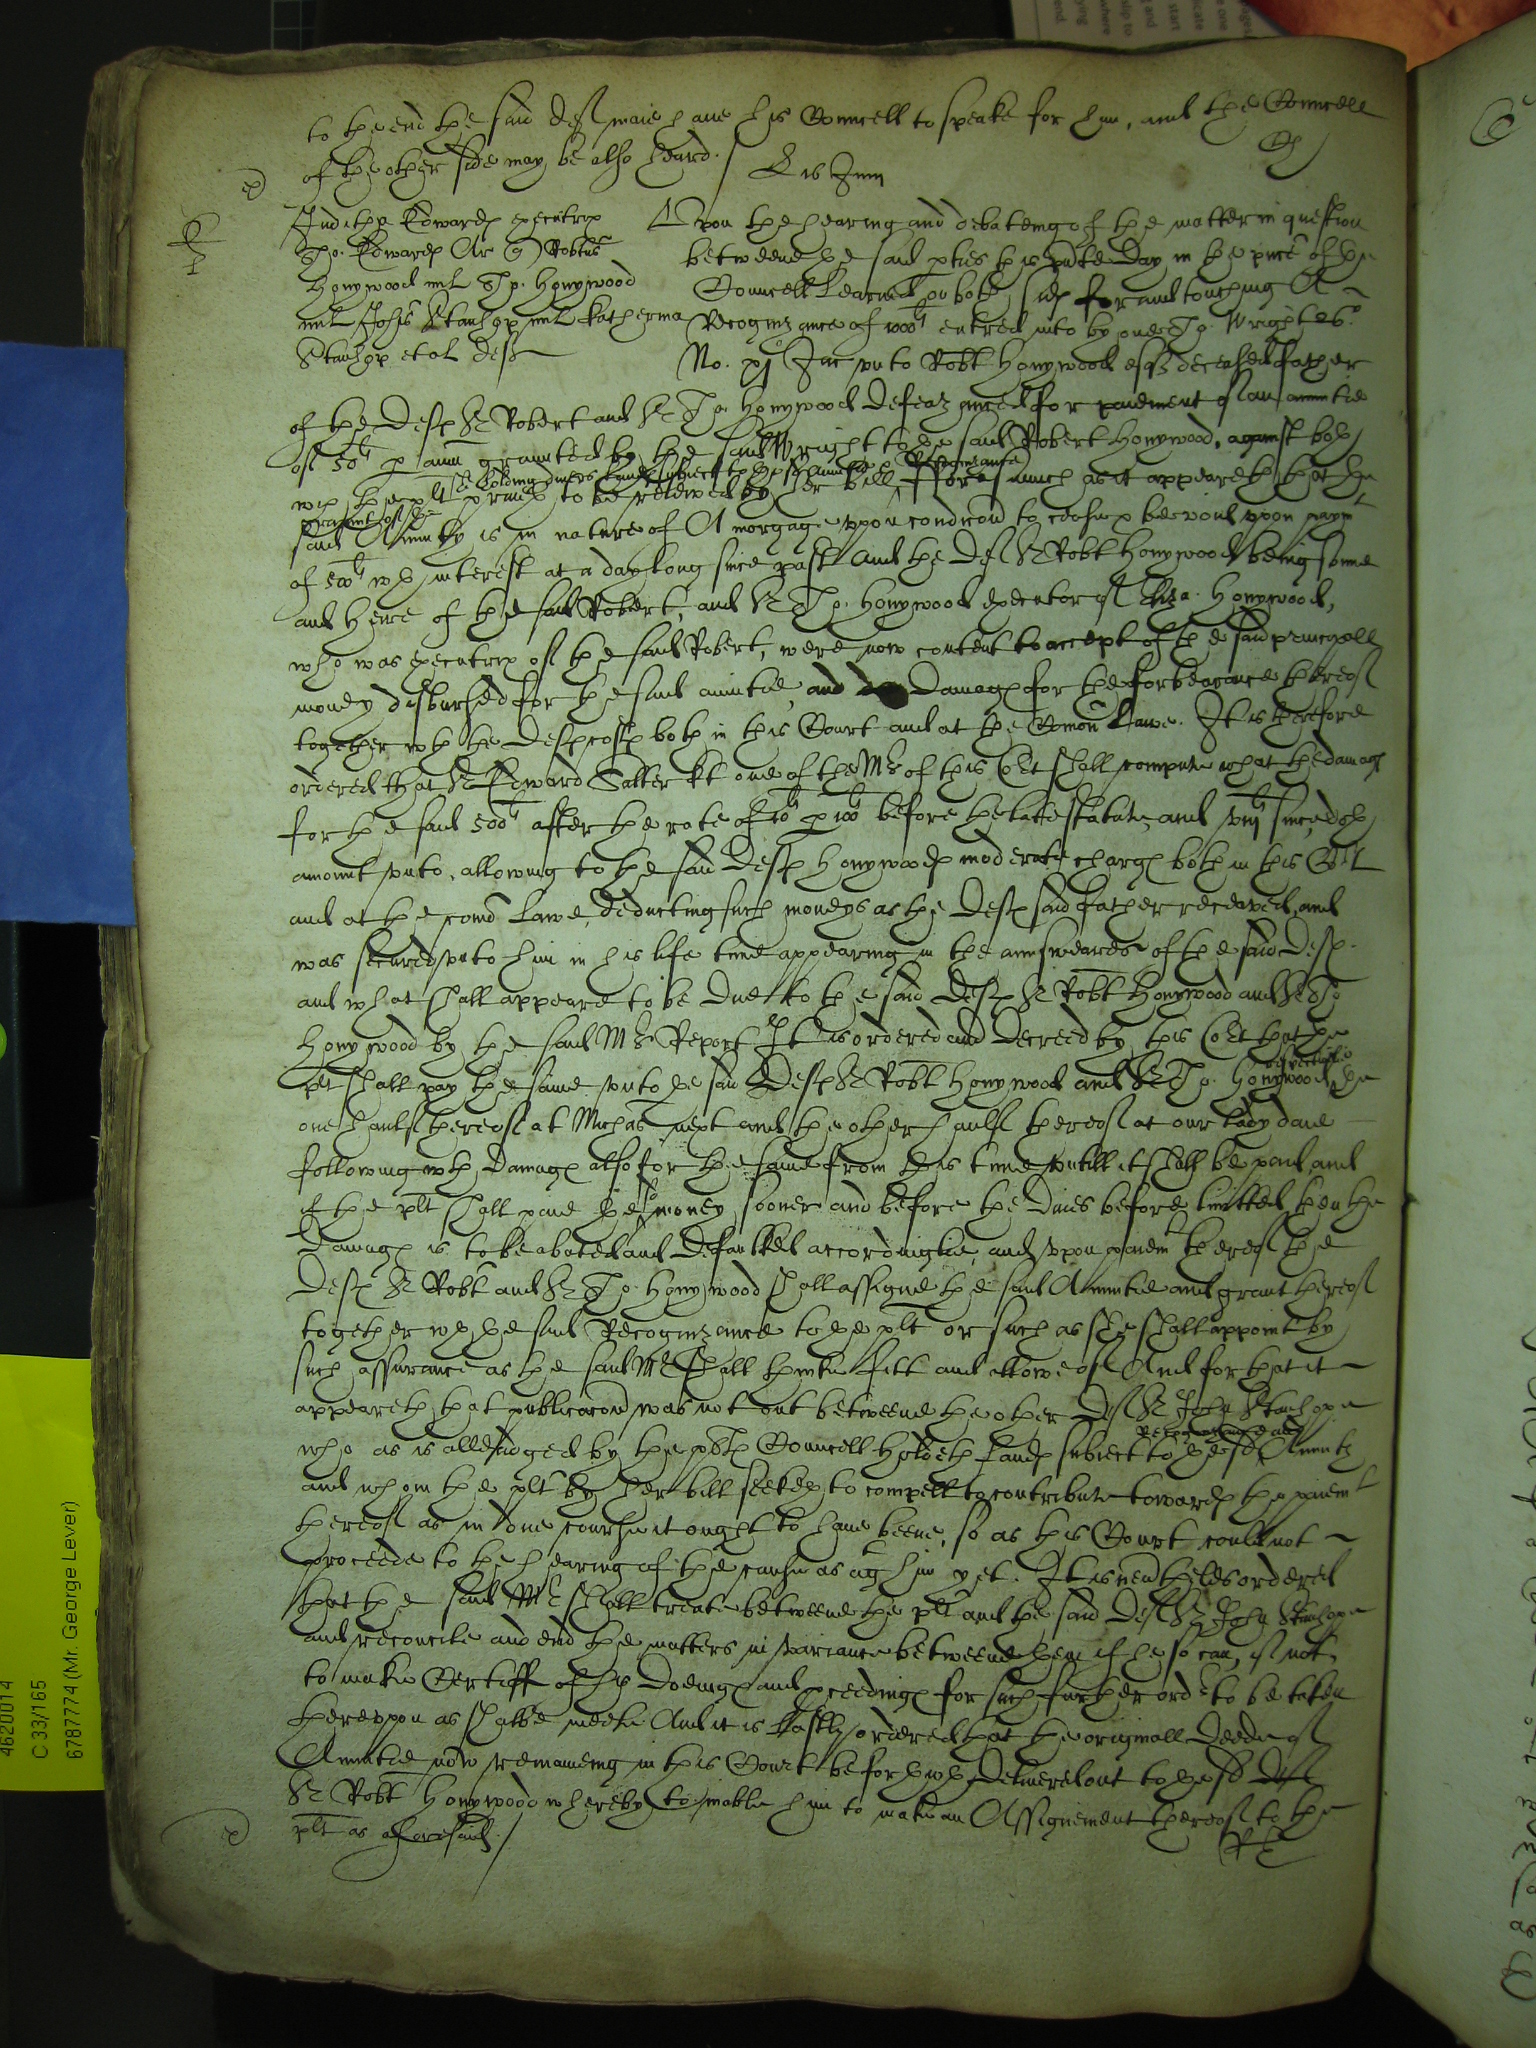 to the end the said deft maie haue his Councell to speake for him, and the Councell
of the other side may be also heard./
E 16 Junij
Judithe Edwardes executrix
Tho: Edwardes Ar
Honywood mil Tho. Honywood
mil Johes Stanhop mil Katherina
Stanhop et al deftes
Vpon the hearing and debateing of the matter in question
betweene the said pties this pnte day in the pnce of the
Councell Learned on both sides for and touching A
Recognizance of 1000li entred into by one Tho. Wright 26o
No. xj Jac vnto Robt Honywood esqz deceased father
of the deftes Sr Robert and Sr Tho. Honywood defeazanced for paiement of an annuitie
of 50li p ann graunted by the said Wright to the said Robert Honywood, against both
Recognizance
wch the plt praieth to be releived by her bill, fforasmuch as it appeareth that the
said Annuity is in nature of A morgage vpon condicon to cease & be void vpon paymt
of 500li wth interest at a day long since past And the deft Sr Robt Honywood being sonne
and heire of the said Robert, and Sr Tho. Honywood executor of Eliza. Honywood,
who was executrix of the said Robert, were now content to accept of the said principall
money disbursed for the said annuitie, and damages for the forbearance thereof
together wth the deftes costes both in this Court and at the Comon Lawe. It is therefore
ordered that Sr Edward Salter kt one of the Mrs of this Cort shall compute what the damages
for the said 500li after the rate of 10li p 100li before the late statute, and viijli since, doth
amount vnto, allowing to the said deftes Honywoodes moderate charges both in this Cort
and at the comon Lawe, deducting such moneys as the deftes said father receaved, and
was secured vnto him in his life time appearing in the answeares of the said deftes.
and what shall appeare to be due to the said deftes Sr Robt Honywood and Sr Tho
Honywood by the said Mrs Report It is ordered and decreed by this Cort that the
plt shall pay the same vnto the said deftes Sr Robt Honywood and Sr Tho. Honywood, respectiuelie the
one haulf thereof at Michas next and the other haulf thereof at our Lady daie
following wth damages also for the same from this time vntill it shall be paid, and
if the plt shall paie the sd money sooner and before the daies before limitted then the
damages is to be abated and defaulked accordinglie, and vpon paiemt thereof the
deftes Sr Robt and Sr Tho. Honywood shall assigne the said Annuitie and grant thereof
together wth the said Recognizance to the plt or such as she shall appoint by
such assurance as the said Mr shall thinke fitt and allowe of And for that it
appeareth that publicacon was not out betweene the other deft Sr John Stanhope
who as is alleadged by the pltes Councell holdeth Landes subiect to the sd Recognizance and Annuity
and whom the plt by her bill seeketh to compell to contribute towardes the paiemt
thereof as in due course it ought to haue beene, so as this Court could not
proceede to the hearing of the cause as agt him yet. It is nevtheles ordered
that the said Mr shall treate betweene the plt and the said deft Sr John Stanhope
and reconcile and end the matters in variance betweene them if he so can, if not,
to make Certiff of his doeinges and pceedinges for such further order to be taken
therevppon as shalbe meete And it is Lastly ordered that the originall deede of
Annuitie now remaineing in this Court be forthwth delivered out to the sd deft
Sr Robt Honywood whereby to inable him to make an Assignement thereof to the
plt as aforesaid./
4620014
C 33/165
6787774 (Mr. George Lever)